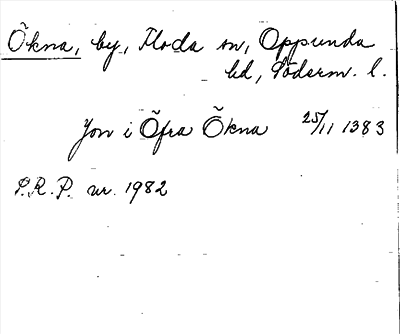 Õkna, by, Floda sn, Oppunda
hd, Söderm. l.
Jon i Õfra Õkna 25/11 1383
S.R.P. nr. 1982